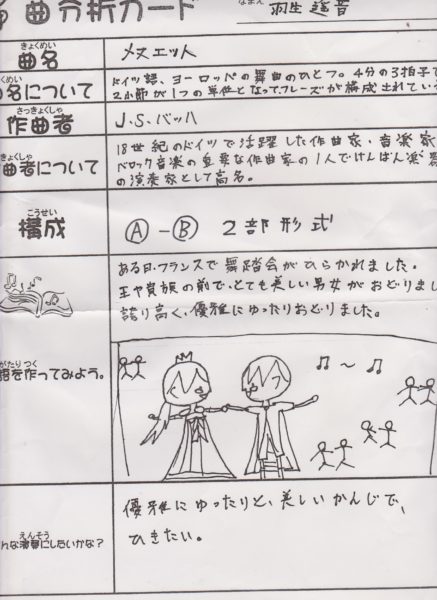 曲分析カード
なまえ
羽生
きょくめい
曲名
メヌエット
くめい
名について
ドイツ語、ヨーロッパの舞曲のひとつ。4分の3拍子で
2小節が1つの単位となってフレーズが構成されている
さっきょくしゃ
作曲者
J.S.バッハ
きょくしゃ
曲者について
18世紀のドイツで活躍した作曲家・音楽家
バロック音楽の重要な作曲家の1人でけんばん楽器
の演奏家として高名。
こうせい
構成
Ⓐ-Ⓑ 2部形式
ある日、フランスで舞踏会がひらかれました。
王や貴族の前で、とても美しい男女がおどりまし
誇り高く、優雅にゆったりおどりました。
がたり つく
語を作ってみよう。
優雅にゆったりと、美しいかんじで、
ひきたい。
えんそう
んな演奏にしたいかな?